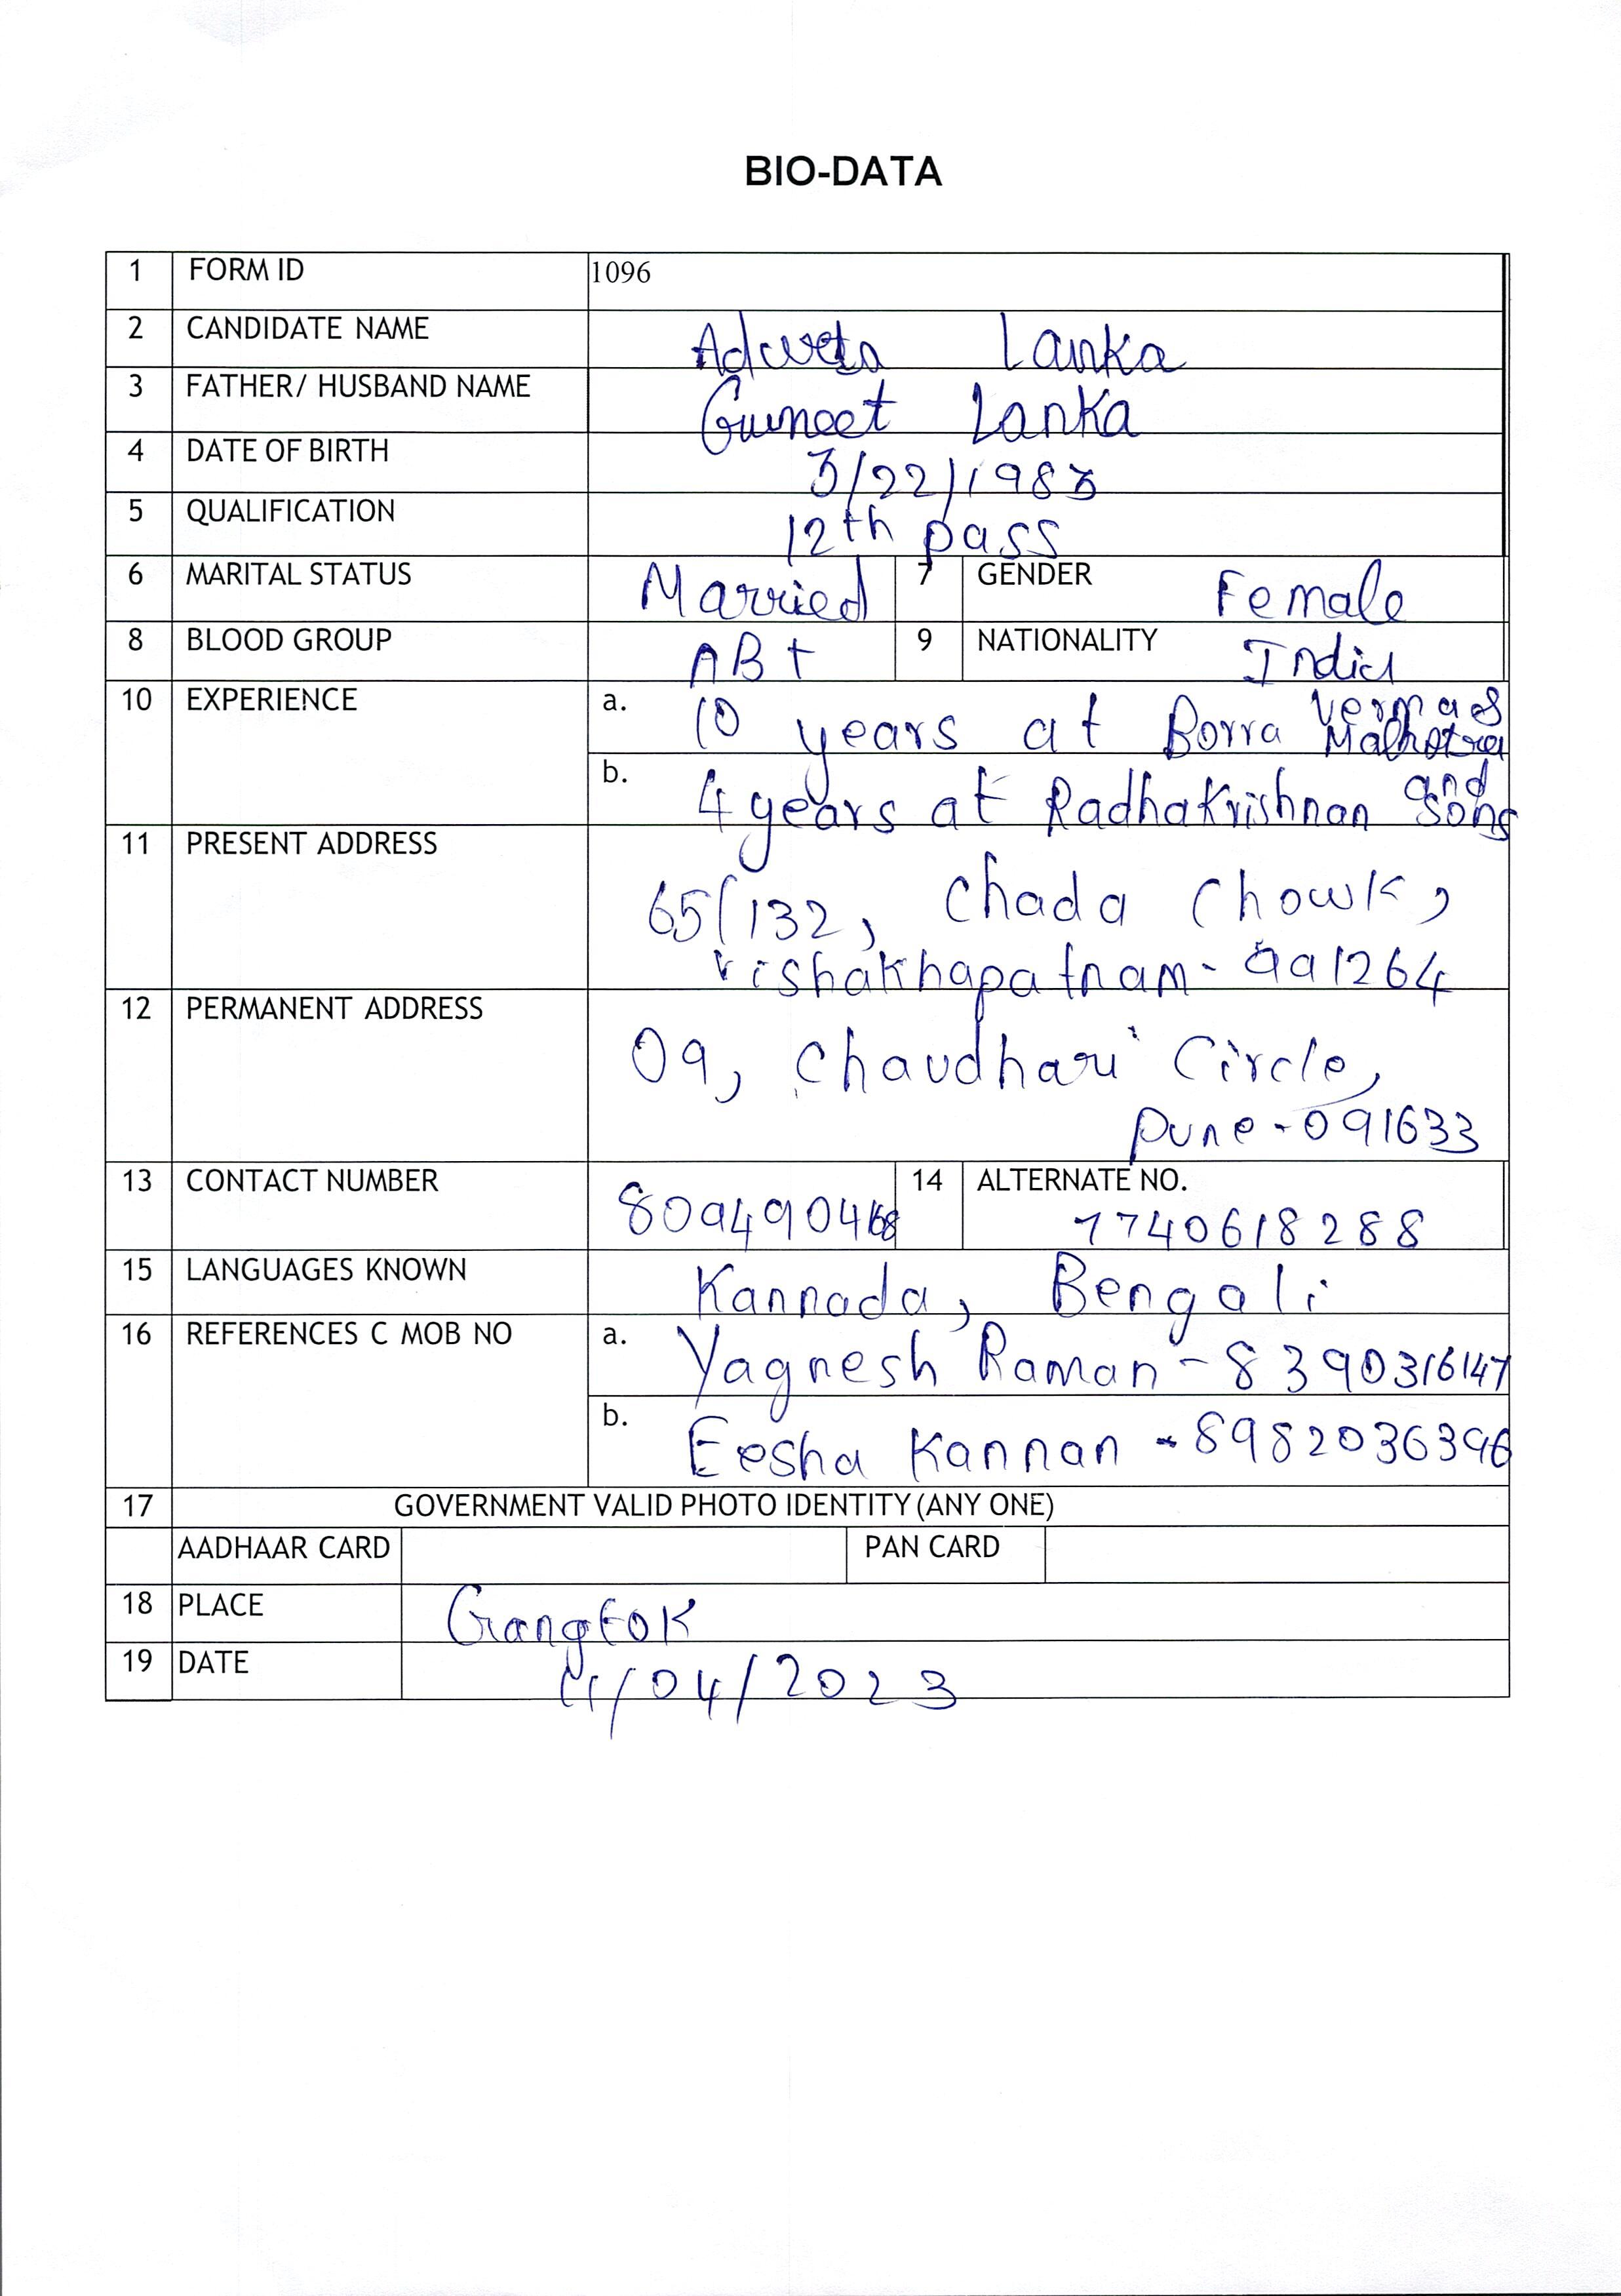 BIO-DATA
1 FORM ID 1096
2 CANDIDATE NAME Lanka
3 FATHER/ HUSBAND NAME Gurneet Lanka
4 DATE OF BIRTH 3/22/1983
5 QUALIFICATION 12th pass
6 MARITAL STATUS Married 7 GENDER Female
8 BLOOD GROUP AB+ 9 NATIONALITY India
10 EXPERIENCE a. 10 years at Borra Verma Malhotra
b. 4 years at Radhakrishnan and Sons
11 PRESENT ADDRESS
65/132, Chada Chowk,
Vishakhapatnam-
12 PERMANENT ADDRESS
09, Chaudhari Circle,
Pune-091633
13 CONTACT NUMBER 14 ALTERNATE NO.
7740618288
15 LANGUAGES KNOWN Kannada, Bengali
16 REFERENCES C MOB NO a. Yagnesh Raman-8390316147
b. Eesha Kannan-8982036396
17 GOVERNMENT VALID PHOTO IDENTITY (ANY ONE)
AADHAAR CARD PAN CARD
18 PLACE Gangtok
19 DATE 11/04/2023